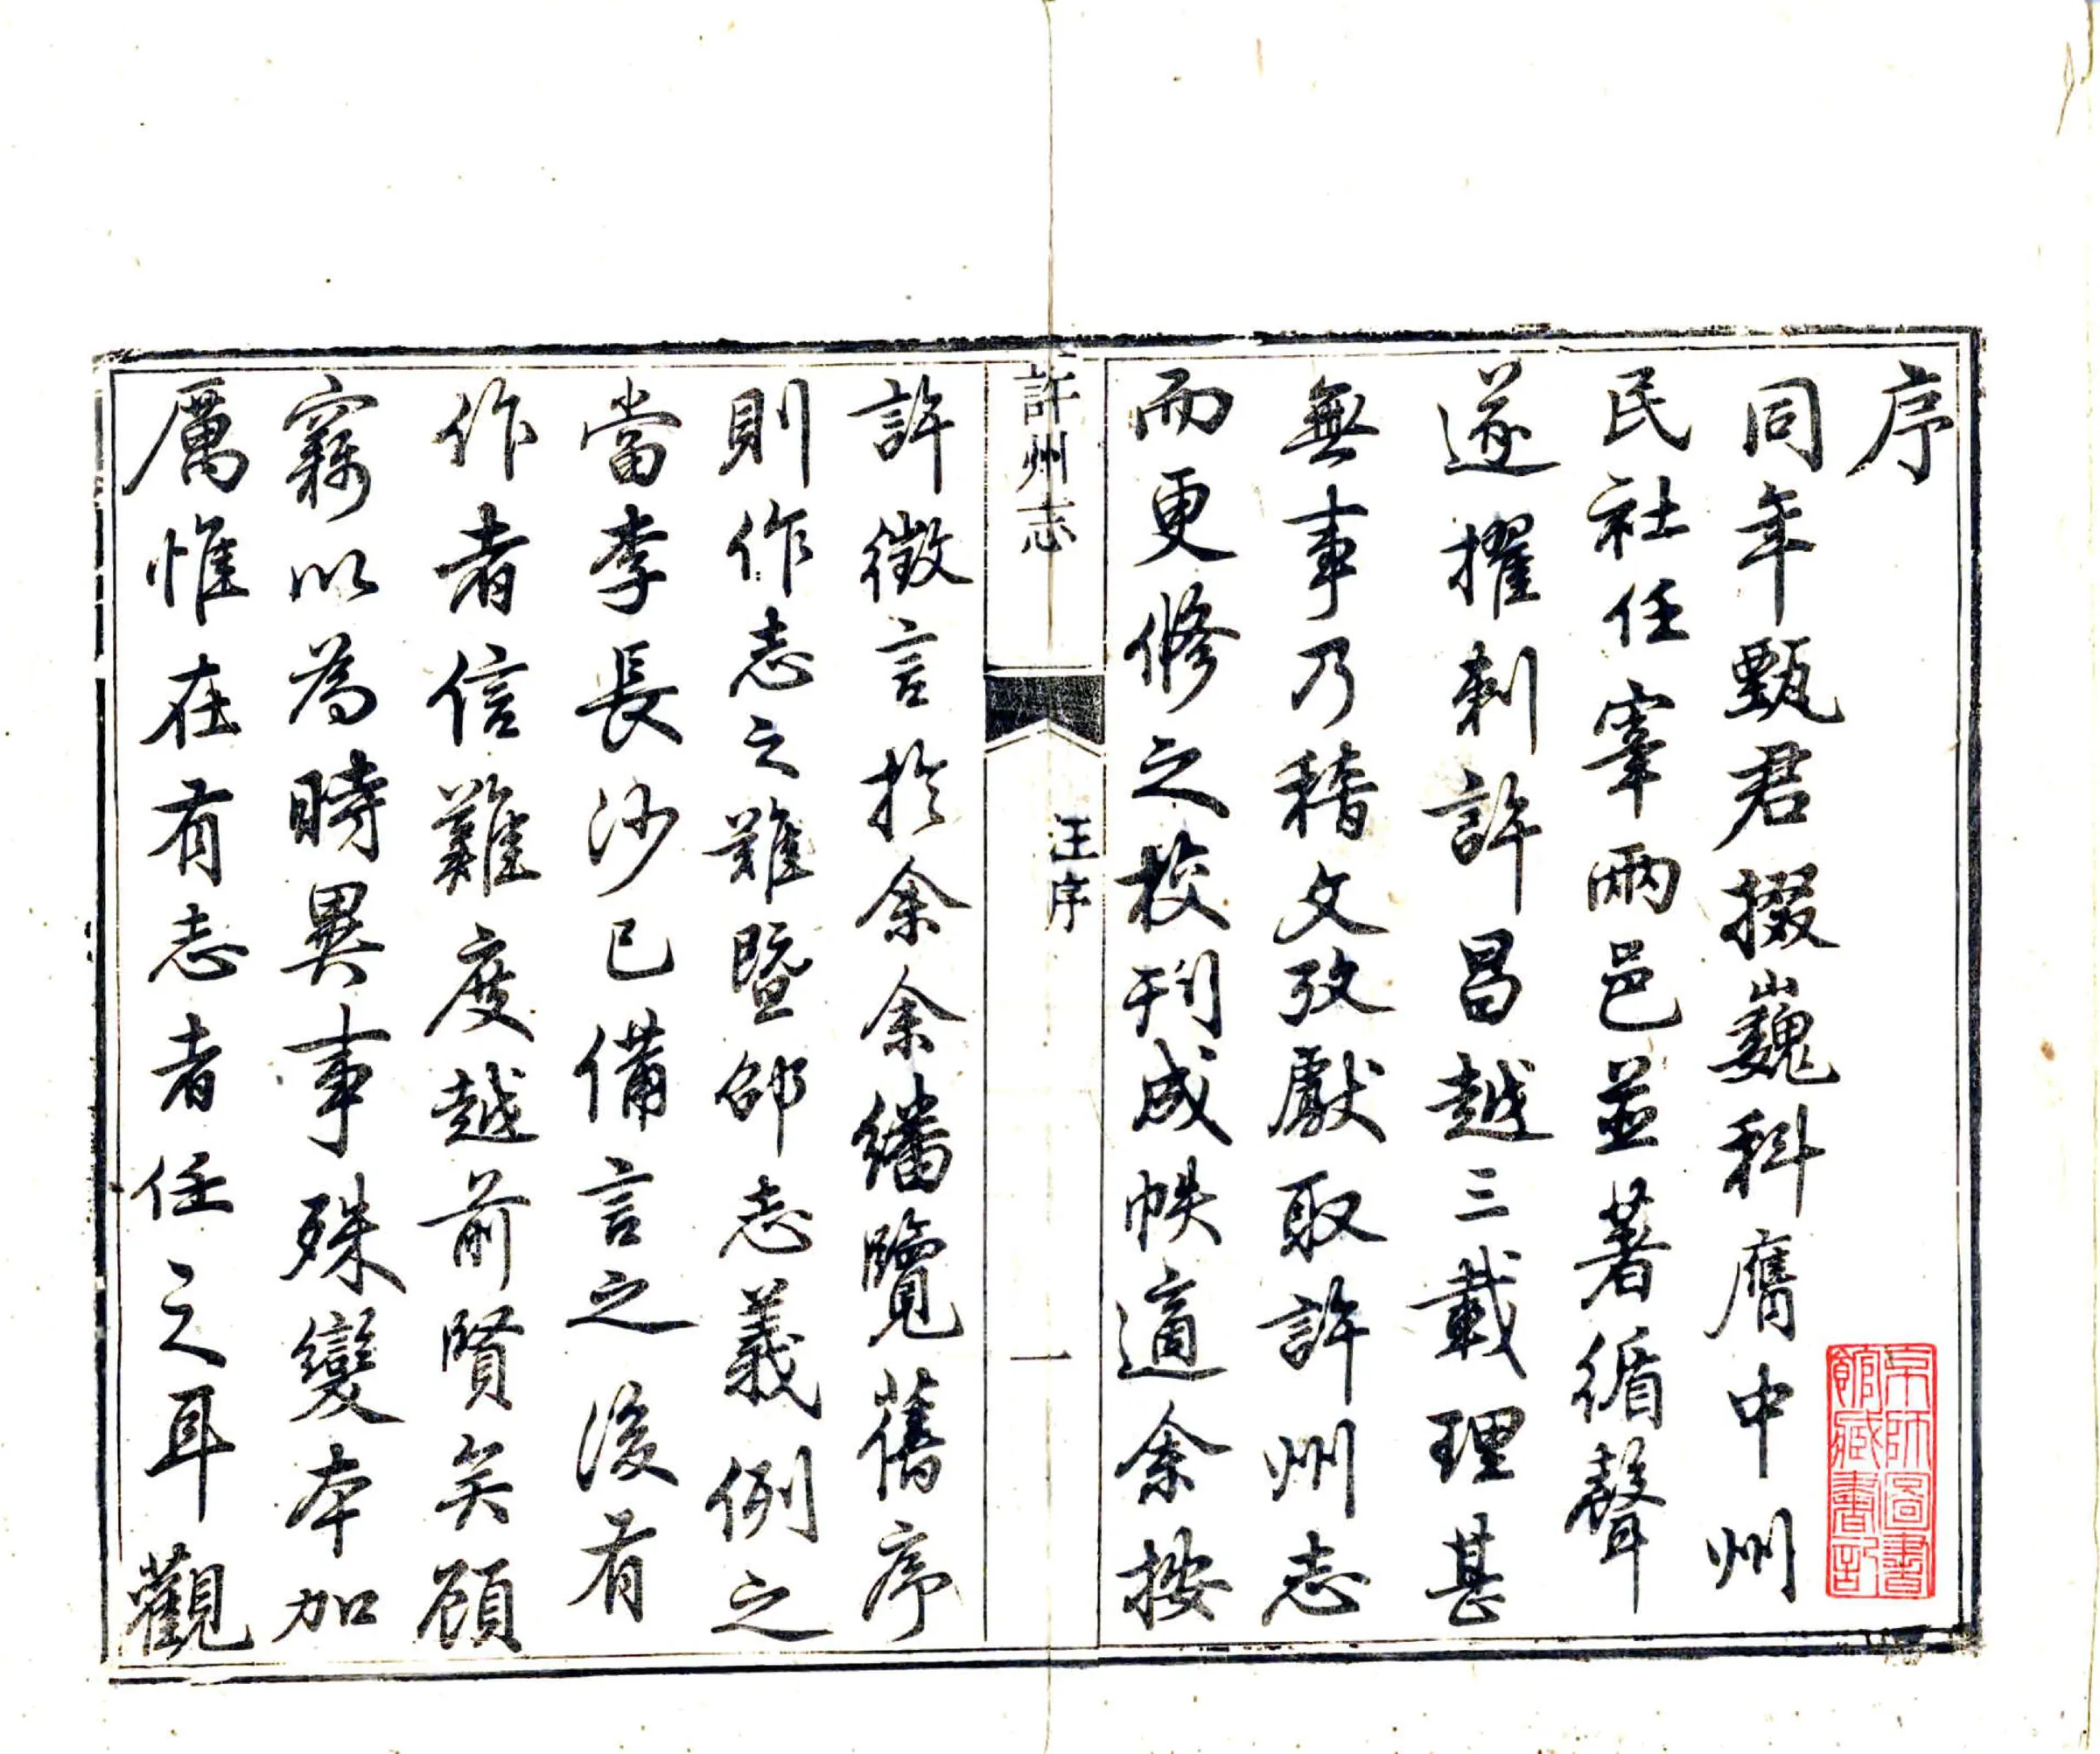 序
同年甄君掇巍科膺中州
民社任宰兩邑並著循聲
遂擢刺許昌越三載理甚
無事乃稽文攷獻取許州志
而更修之校刊成帙適余按
許州志
王序
一
許徵言於余余繙覽舊序
則作志之難暨邵志義例之
當李長沙已備言之後有
作者信難度越前賢矣顧
竊以為時異事殊變本加
厲惟在有志者任之耳觀
京師圖書
館藏書記